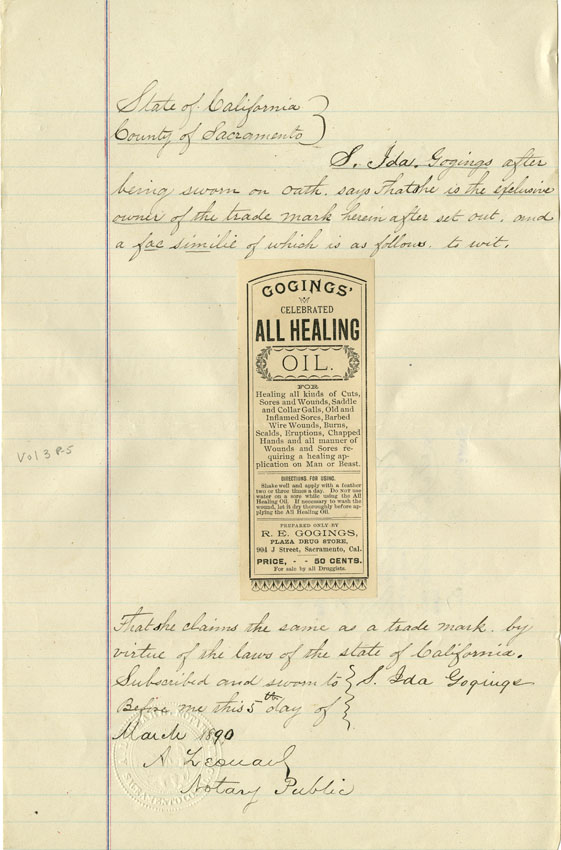 State of California
County of Sacramento
S. Ida. Gogings after
being sworn on oath. says That she is the exclusive
owner of the trade mark herein after set out. and
a fac similie of which is as follows. to wit.
GOGINGS'
CELEBRATED
ALL HEALING
OIL.
FOR
Healing all kinds of Cuts,
Sores and Wounds, Saddle
and Collar Galls, Old and
Inflamed Sores, Barbed
Wire Wounds, Burns,
Scalds, Eruptions, Chapped
Hands and all manner of
Wounds and Sores re-
quiring a healing ap-
plication on Man or Beast.
DIRECTIONS FOR USING.
Shake well and apply with a feather
two or three times a day. Do NOT use
water on a sore while using the All
Healing Oil. If necessary to wash the
wound, let it dry thoroughly before ap-
plying the All Healing Oil.
PREPARED ONLY BY
R. E. GOGINGS,
PLAZA DRUG STORE,
904 J Street, Sacramento, Cal.
PRICE, - - 50 CENTS.
For sale by all Druggists.
Vol 3 P-5
That she claims the same as a trade mark. by
virtue of the laws of the state of California.
Subscribed and sworn to S. Ida Gogings
Before me this 5th day of
March 1890
A Leonard
Notary Public